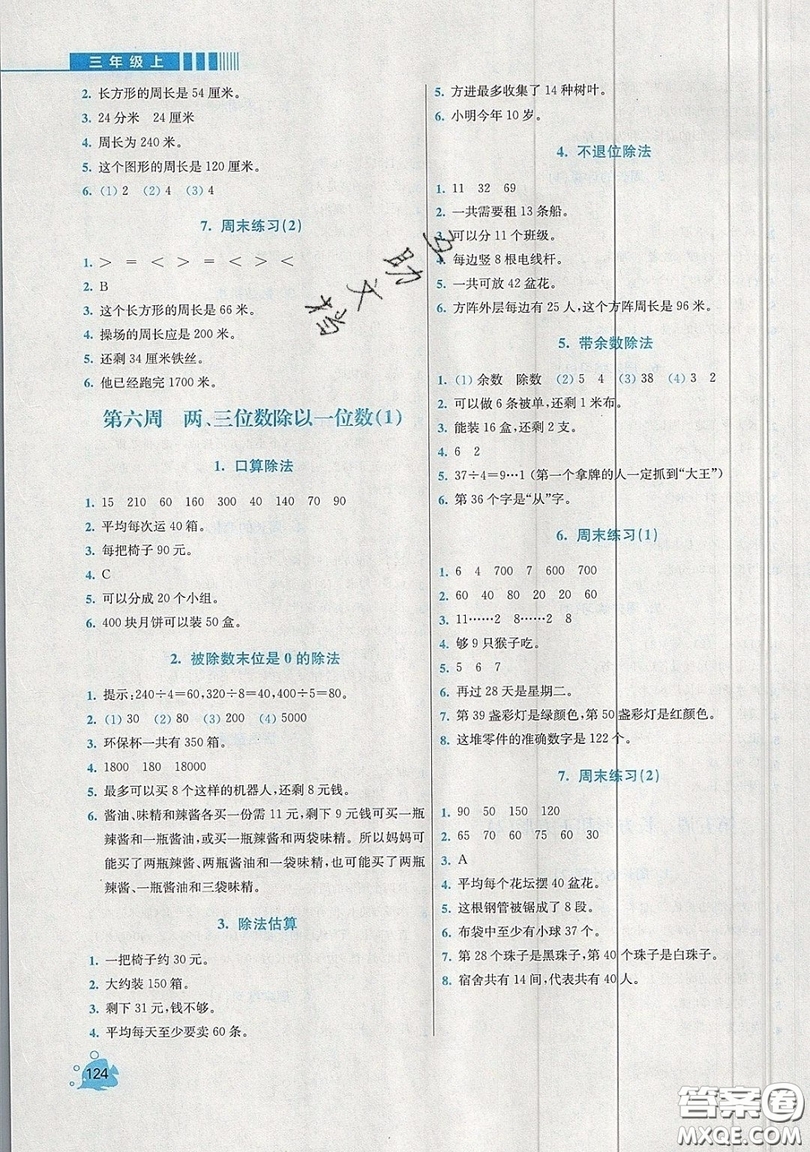 三年级上
2. 长方形的周长是 54 厘米。
3. 24 分米　24 厘米
4. 周长为 240 米。
5. 这个图形的周长是 120 厘米。
6. (1) 2　(2) 4　(3) 4
7. 周末练习(2)
1. ＞　＝　＜　＞　＝　＜　＞　＜
2. B
3. 这个长方形的周长是 66 米。
4. 操场的周长应是 200 米。
5. 还剩 34 厘米铁丝。
6. 他已经跑完 1700 米。
第六周　两、三位数除以一位数(1)
1. 口算除法
1. 15　210　60　160　300　40　140　70　90
2. 平均每次运 40 箱。
3. 每把椅子 90 元。
4. C
5. 可以分成 20 个小组。
6. 400 块月饼可以装 50 盒。
2. 被除数末位是 0 的除法
1. 提示:240÷4=60,320÷8=40,400÷5=80。
2. (1) 30　(2) 80　(3) 200　(4) 5000
3. 环保杯一共有 350 箱。
4. 1800　180　18000
5. 最多可以买 8 个这样的机器人,还剩 8 元钱。
6. 酱油、味精和辣酱各买一份需 11 元,剩下 9 元钱可买一瓶
辣酱和一瓶酱油,或买一瓶辣酱和两袋味精。所以妈妈可
能买了两瓶辣酱、两瓶酱油和一袋味精,也可能买了两瓶
辣酱、一瓶酱油和三袋味精。
3. 除法估算
1. 一把椅子约 30 元。
2. 大约装 150 箱。
3. 剩下 31 元,钱不够。
4. 平均每天至少要卖 60 条。
5. 方进最多收集了 14 种树叶。
6. 小明今年 10 岁。
4. 不退位除法
1. 11　32　69
2. 一共需要租 13 条船。
3. 可以分 11 个班级。
4. 每边竖 8 根电线杆。
5. 一共可放 42 盆花。
6. 方阵外层每边有 25 人,这个方阵周长是 96 米。
5. 带余数除法
1. (1) 余数　除数　(2) 5　4　(3) 38　(4) 3　2
2. 可以做 6 条被单,还剩 1 米布。
3. 能装 16 盒,还剩 2 支。
4. 6　2
5. 37÷4=9…1 (第一个拿牌的人一定抓到“大王”)
6. 第 36 个字是“从”字。
6. 周末练习(1)
1. 6　4　700　7　600　700
2. 60　40　80　20　20　60
3. 11……2　8……2　9
4. 够 9 只猴子吃。
5. 5　6　7
6. 再过 28 天是星期二。
7. 第 39 盏彩灯是绿颜色,第 50 盏彩灯是红颜色。
8. 这堆零件的准确数字是 122 个。
7. 周末练习(2)
1. 90　50　150　120
2. 65　70　60　75　60　30
3. A
4. 平均每个花坛摆 40 盆花。
5. 这根钢管被锯成了 8 段。
6. 布袋中至少有小球 37 个。
7. 第 28 个珠子是黑珠子、第 40 个珠子是白珠子。
8. 宿舍共有 14 间,代表共有 40 人。
124
答案圈
MXQE.COM